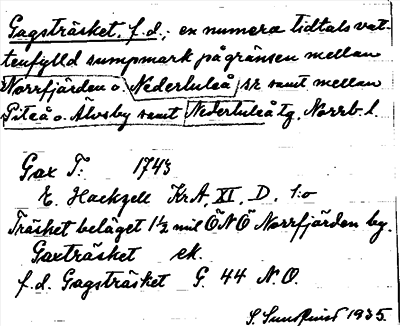 Gagsträsket, f.d.; en numera tidtals vat-
tenfylld sumpmark på gränsen mellan
Norrfjärden o. Nederluleå sr samt mellan
Piteå o. Älvsby samt Nederluleå tg, Norrb. l.
Gax T: 1743
E. Hackzell KrA, XI, D. 1:o
Träsket beläget 1½ mil ÖNÖ Norrfjärden by.
Gaxträsket ek.
f.d. Gagsträsket G. 44 N.O.
S. Sundkvist 1935.